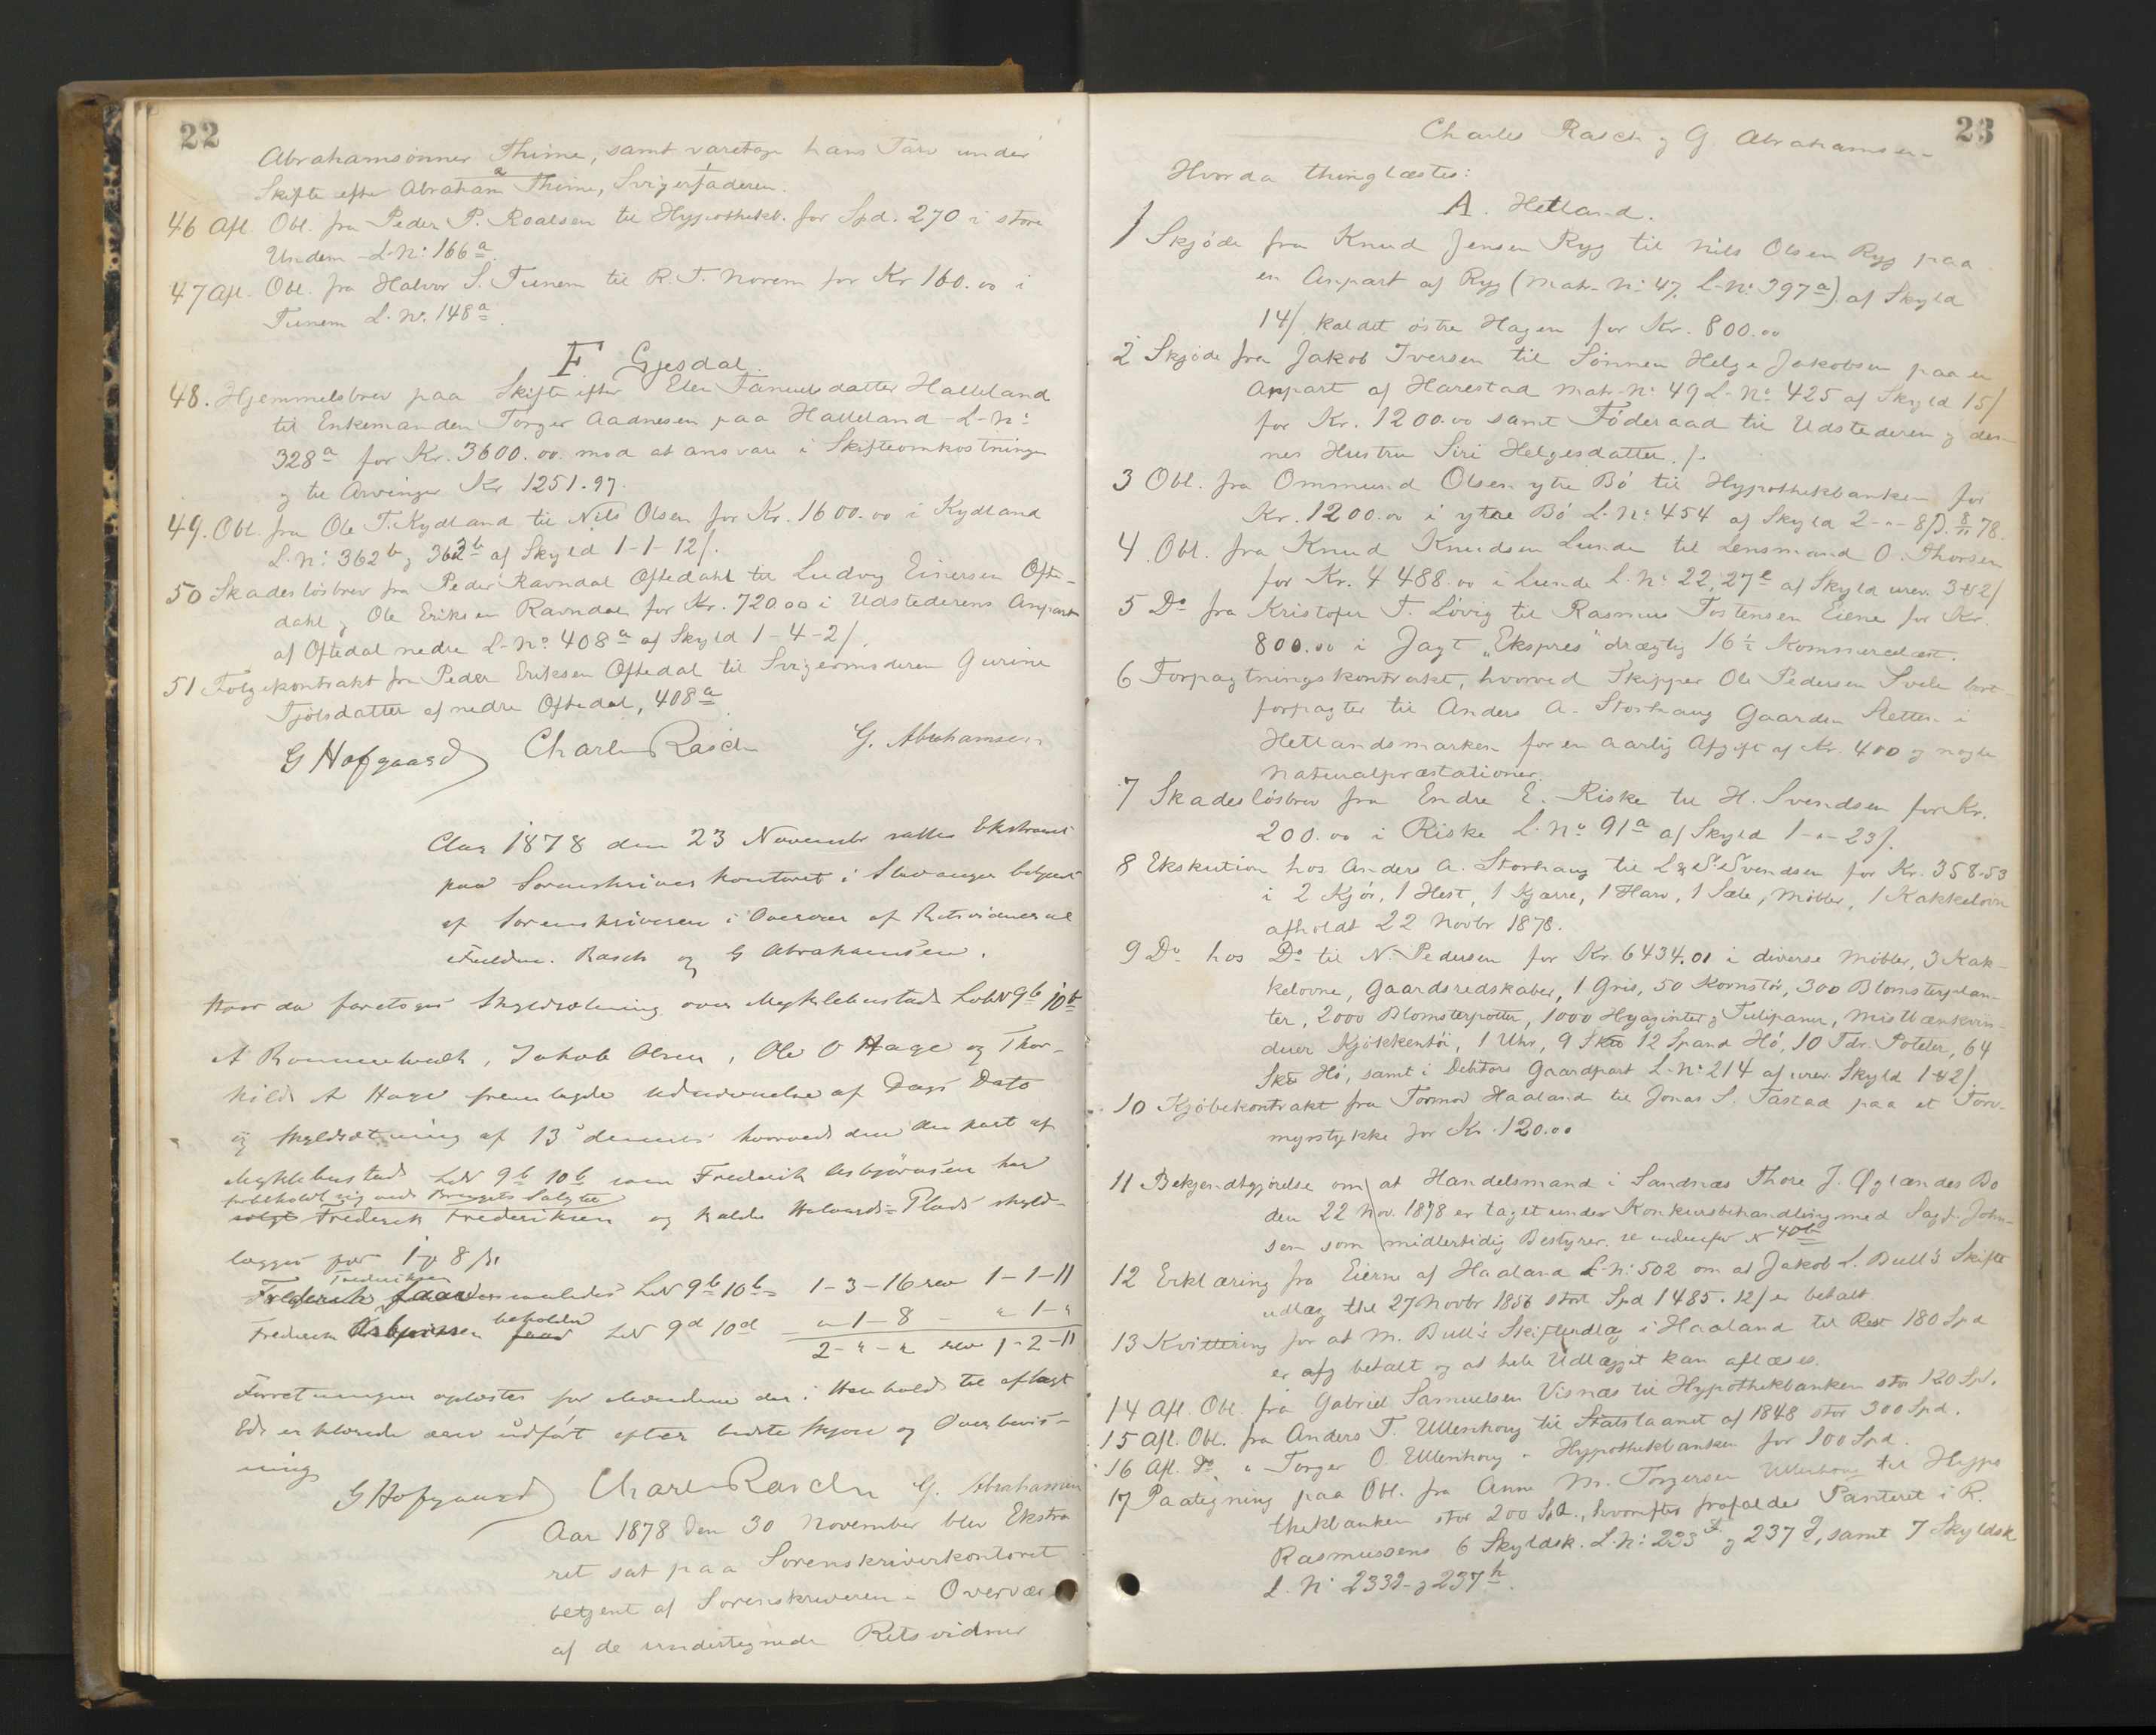 22
Abrahamsønner Thime, samt varetage hans Tarv under
Skifte efter Abraham Thime, Svigerfaderen.
46 Afl. Obl. fra Peder P. Roalsen til Hypothekb. for Spd. 270 i store
Undem L-No: 166a
47 Afl. Obl. fra Halvor S. Tunem til R. T. Norem for Kr 160.00 i
Tunem L. No. 148a.
F Gjesdal.
48. Hjemmelsbrev paa Skifte efter Elen Tanuelsdatter Halleland
til Enkemanden Torger Aadnesen paa Halleland L-No:
328a for Kr. 3600.00. mod at ansvare i Skifteomkostninger
og til Arvinger Kr 1251.97.
49. Obl. fra Ole T. Kydland til Nils Olsen for Kr. 1600.00 i Kydland
L.No: 362b og 363b af Skyld 1-1-12/.
50 Skadesløsbrev fra Peder Ravndal Oftedahl til Ludvig Einersen Ofte-
dahl og Ole Eriksen Ravndal for Kr. 720.00 i Udstederens Anpart
af Oftedal nedre L-No: 408a af Skyld 1-4-2/.
51 Følgekontrakt fra Peder Eriksen Oftedal til Svigermoderen Gurine
Tjølsdatter af nedre Oftedal, 408a.
G Hofgaard Charles Rasch G. Abrahamsen
Aar 1878 den 23 November sattes Ekstraret
paa Sorenskriverkontoret i Stavanger betjent
af Sorenskriveren i Overvær af Retsvidnerne
Fuldm. Rasch og G Abrahamsen.
Hvor da foretoges Skyldsætning over Myklebustad LobN 9b 10b
A Rommetvedt, Jakob Olsen, Ole O Hage og Thor-
kild A Hage fremlagde Udnævnelse af Dags Dato
og Skyldsætning af 13 dennes hvorved den den part af
Myklebustad LNo 9b 10b som Frederik Asbjørnsen har
forbeholdt sig ved Brugets Salg til
solgt Frederik Frederiksen og kaldes Halvards-Plads skyld-
lægges for 1 8 /.
Frederiksen
Frederik LNo 9b 10b = 1-3-16 rev 1-1-11
beholder
Frederik Asbjørnsen faar LNo 9d 10d " 1-8 - " 1-"
2-"-" rev 1-2-11
Forretningen oplæstes for Mændene der i Henhold til aflagt
Ed erklærede den udført efter bedste Skjøn og Overbevis-
ning
G Hofgaard Charles Rasch G. Abrahamsen
Aar 1878 den 30 November blev Ekstra
ret sat paa Sorenskriverkontoret
betjent af Sorenskriveren i Overvær
af de undertegnede Retsvidner
23
Charles Rasch og G. Abrahamsen-
Hvorda thinglæstes:
A. Hetland.
1 Skjøde fra Knud Jensen Ryg til Nils Olsen Ryg paa
en Anpart af Ryg (Matr-No: 47, L-No: 397a) af Skyld
14/ kaldet østre Hagen for Kr. 800.00
2 Skjøde fra Jakob Iversen til Sønnen Helge Jakobsen paa en
Anpart af Harestad Matr-No: 49 L-No: 425 af Skyld 15/
for Kr. 1200.00 samt Føderaad til Udstederen og den-
nes Hustru Siri Helgesdatter. /.
3 Obl. fra Ommund Olsen ytre Bø til Hypothekbanken for
Kr. 1200.00 i ytre Bø L-No: 454 af Skyld 2-"-8/. D. 8/11 78.
4. Obl. fra Knud Knudsen Lunde til Lensmand O. Thorsen
for Kr. 4488.00 i Lunde L.No: 22, 27e af Skyld urev. 3 # 2/
5 Do fra Kristofer T. Løvig til Rasmus Tostensen Eiene for Kr.
800.00 i Jagt "Ekspres" drægtig 16 1/2 Kommercelæst.
6 Forpagtningskontrakt, hvorved Skipper Ole Pedersen Svele bort
forpagter til Anders A. Storhaug Gaarden Sletten i
Hetlandsmarken for en aarlig Afgift af Kr. 400 og nogle
Naturalpræstationer.
7 Skadesløsbrev fra Endre E. Riske til H. Svendsen for Kr.
200.00 i Riske L.No 91a af Skyld 1-"-23/.
8 Ekskution hos Anders A. Storhaug til L & S. Svendsen for Kr. 358.53
i 2 Kjør, 1 Hest, 1 Kjærre, 1 Harv, 1 Sæle, Møbler, 1 Kakkelovn
afholdt 22 Novbr 1878.
9 Do hos Do til N. Pedersen for Kr. 6434.01 i diverse Møbler, 3 Kak-
kelovne, Gaardsredskaber, 1 Gris, 50 Kornstør, 300 Blomsterplan-
ter, 2000 Blomsterpotter, 1000 Hyaginter og Tulipaner, Mistbænkvin-
duer Kjøkkentøi, 1 Uhr, 9 Sk 12 Spand Hø, 10 Tdr. Poteter, 64
Sk Hø, samt i Debitors Gaardpart L-No: 214 af urev. Skyld 1 # 2/.
10 Kjøbekontrakt fra Tormod Haaland til Jonas S. Tastad paa et Torv-
myrstykke for Kr. 120.00
11 Bekjendtgjørelse om at Handelsmand i Sandnæs Thore J. Øglændes Bo
den 22 Nov. 1878 er taget under Konkursbehandling med Sagf. John-
sen som midlertidig Bestyrer. se nedenfor N 40b
12 Erklæring fra Eierne af Haaland L-No: 502 om at Jakob L. Bull's Skifte
udlæg thl 27 Novbr 1856 stort Spd 1485.12/ er betalt.
13 Kvittering for at M. Bull's Skifteudlæg i Haaland til Rest 180 Spd
er afg betalt og at hele Udlægget kan aflæses.
14 Afl. Obl. fra Gabriel Samuelsen Visnæs til Hypothekbanken stor 120 Spd.
15 Afl. Obl. fra Anders T. Ullenhoug til Statslaanet af 1848 stor 300 Spd.
16 Afl. Do " Torger O. Ullenhoug " Hypothekbanken for 100 Spd.
17 Paategning paa Obl. fra Anne M. Torgersen Ullenhoug til Hypo
thekbanken stor 200 Spd., hvorefter frafaldes Panteret i R.
Rasmussens 6 Skyldsk. L.No: 233f og 237g, samt 7 Skyldsk
L. No 233g og 237h.